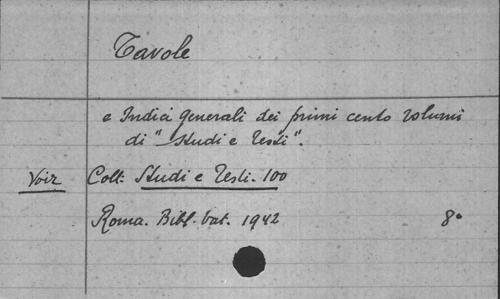 Tavole
e Indici generali dei primi cento volumi
di "Studi e Testi".
Voir Coll. Studi e Testi. 100
Roma. Bibl. Vat. 1942 8°